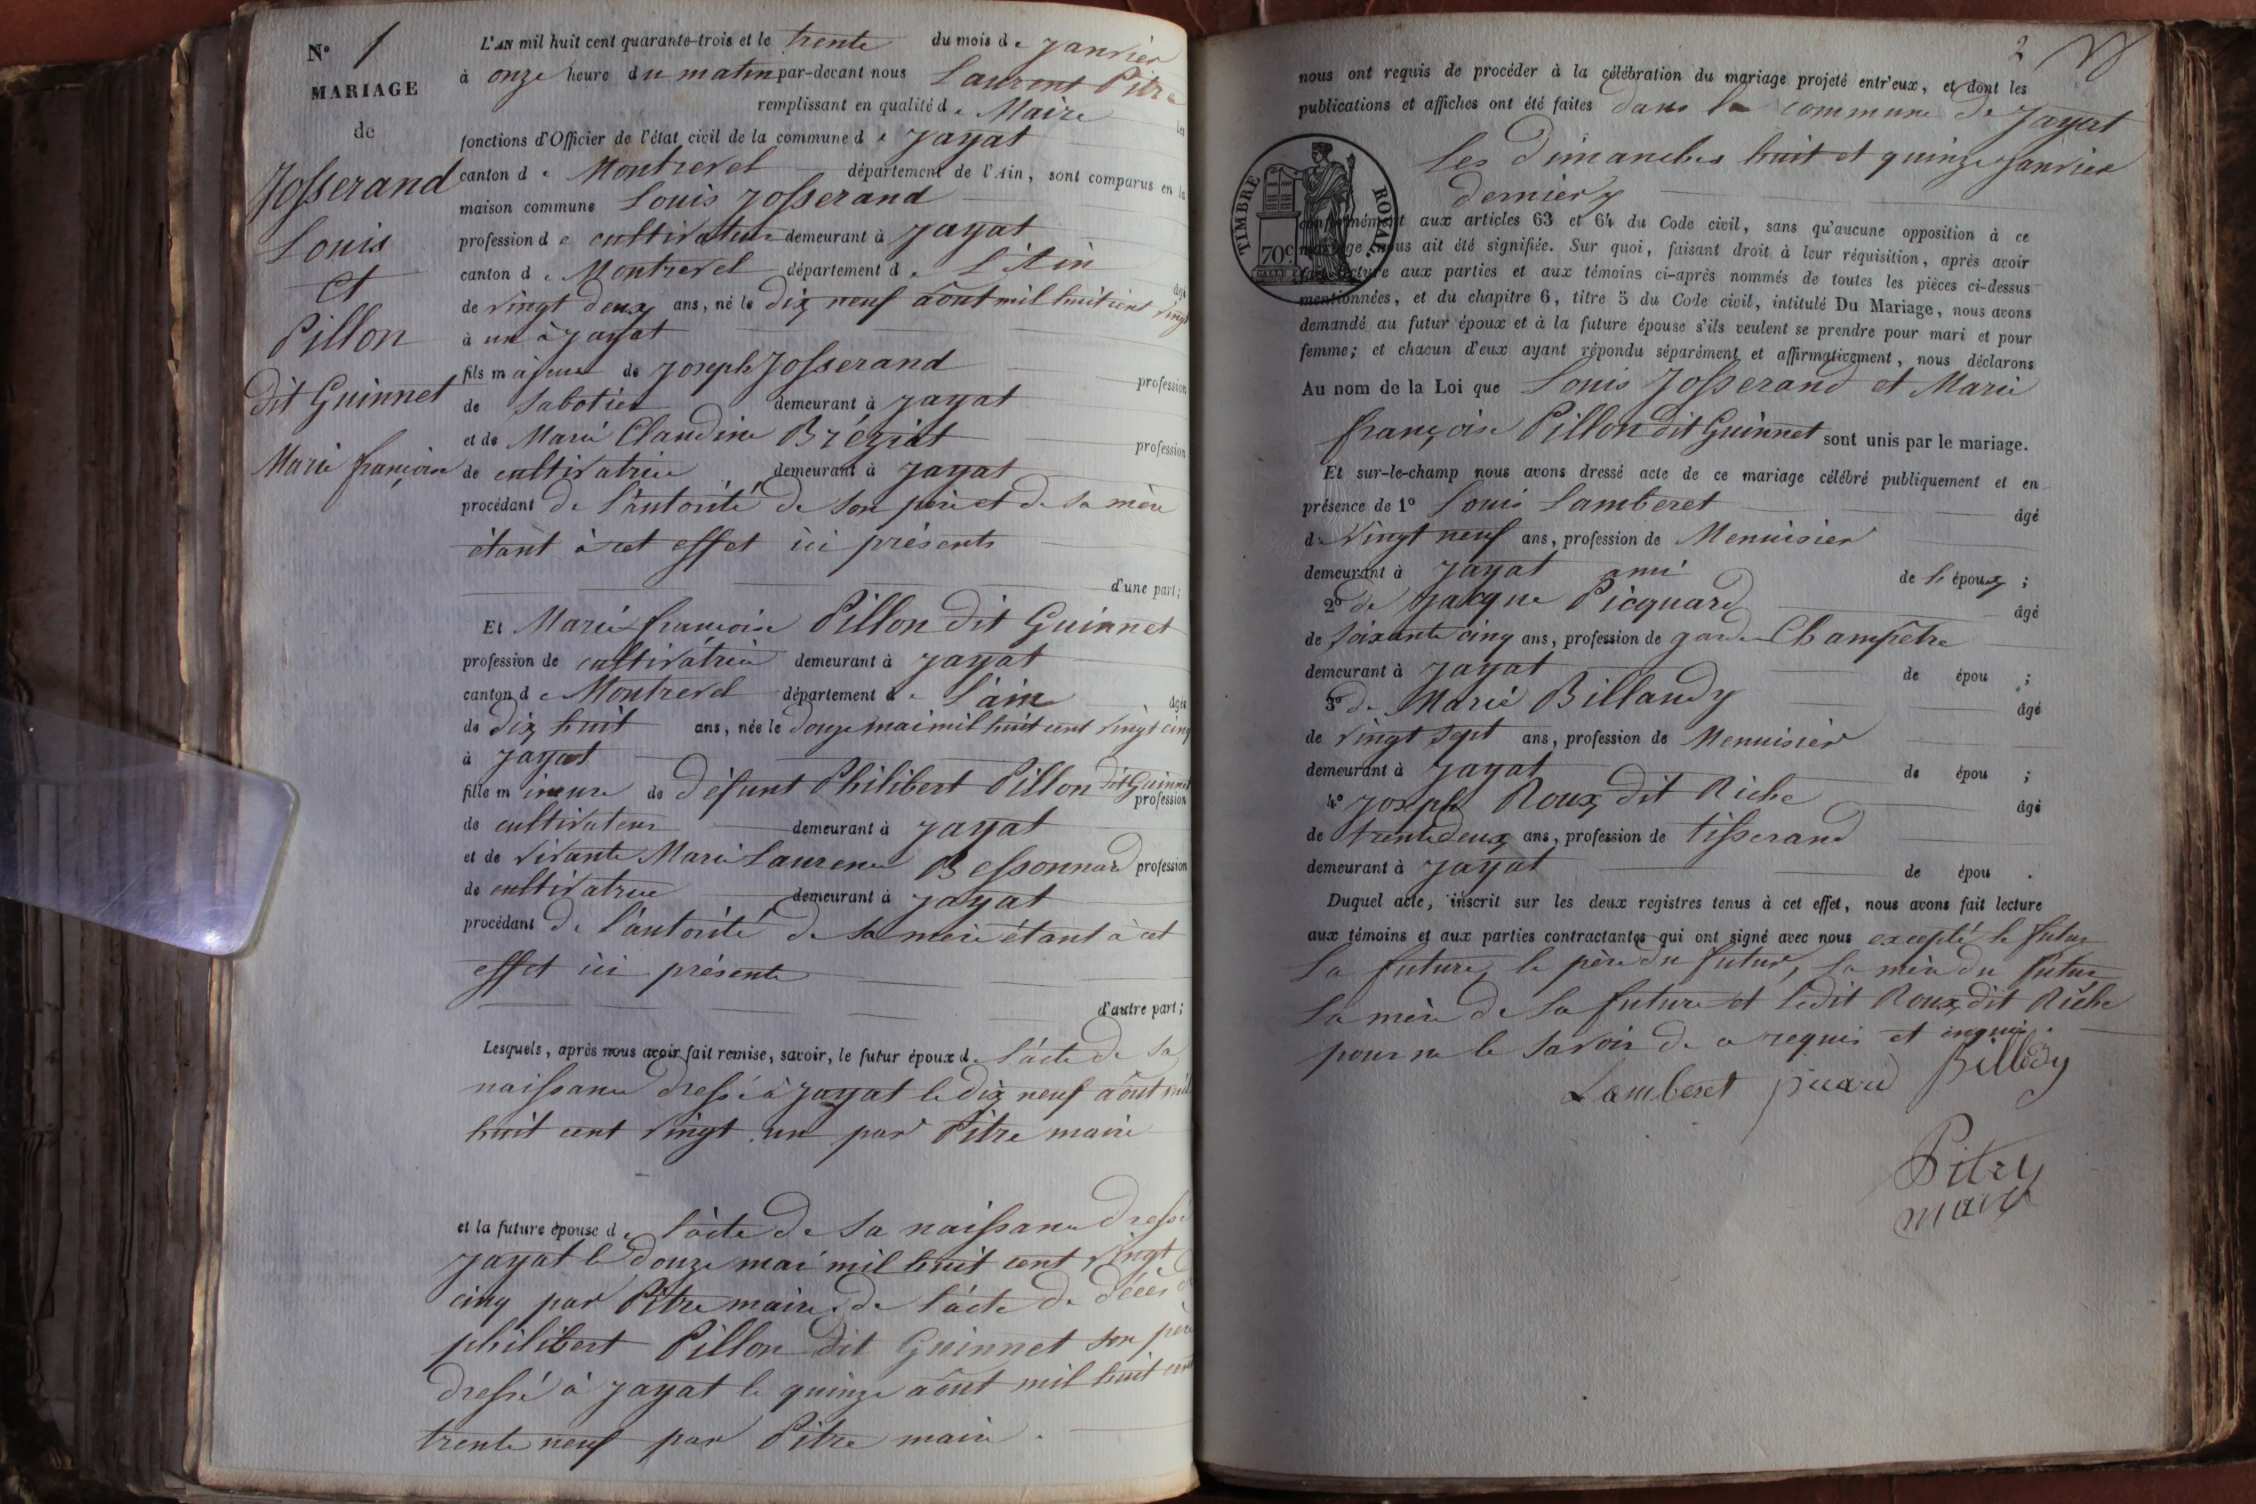 Nº 1
MARIAGE
de
Josserand
Louis
et
Pillon
dit Guinnet
Marie françoise
L'AN mil huit cent quarante-trois et le trente du mois de Janvier
à onze heure du matin par-devant nous Laurent Pitre
remplissant en qualité de Maire les
fonctions d'Officier de l'état civil de la commune de Jayat
canton de Montrevel département de l'Ain, sont comparus en la
maison commune Louis Josserand
profession de cultivateur demeurant à Jayat
canton de Montrevel département de L'Ain âgé
de vingt deux ans, né le dix neuf août mil huit cent vingt
à un à Jayat
fils majeur de Joseph Josserand profession
de Sabotier demeurant à Jayat
et de Marie Claudine Bréziat profession
de cultivatrice demeurant à Jayat
procédant de l'autorité de son père et de sa mère
étant à cet effet ici présents
d'une part;
Et Marie françoise Pillon dit Guinnet
profession de cultivatrice demeurant à Jayat
canton de Montrevel département de L'ain âgée
de dix huit ans, née le douze mai mil huit cent vingt cinq
à Jayat
fille mineure de défunt Philibert Pillon dit Guinnet profession
de cultivateur demeurant à Jayat
et de vivante Marie Laurence Bessonnard profession
de cultivatrice demeurant à Jayat
procédant de l'autorité de sa mère étant à cet
effet ici présente
d'autre part;
Lesquels, après nous avoir fait remise, savoir, le futur époux de l'acte de sa
naissance dressé à Jayat le dix neuf août mil
huit cent vingt un par Pitre maire
et la future épouse de l'acte de sa naissance dressé
Jayat le douze mai mil huit cent vingt
cinq par Pitre maire de l'acte de décès de
philibert Pillon dit Guinnet son père
dressé à Jayat le quinze août mil huit cent
trente neuf par Pitre maire.
2
nous ont requis de procéder à la célébration du mariage projeté entr'eux, et dont les
publications et affiches ont été faites dans la commune de Jayat
les dimanches huit et quinze janvier
derniers
TIMBRE ROYAL
70c
conformément aux articles 63 et 64 du Code civil, sans qu'aucune opposition à ce
mariage nous ait été signifiée. Sur quoi, faisant droit à leur réquisition, après avoir
fait lecture aux parties et aux témoins ci-après nommés de toutes les pièces ci-dessus
mentionnées, et du chapitre 6, titre 5 du Code civil, intitulé Du Mariage, nous avons
demandé au futur époux et à la future épouse s'ils veulent se prendre pour mari et pour
femme; et chacun d'eux ayant répondu séparément et affirmativement, nous déclarons
Au nom de la Loi que Louis Josserand et Marie
françoise Pillon dit Guinnet sont unis par le mariage.
Et sur-le-champ nous avons dressé acte de ce mariage célébré publiquement et en
présence de 1º Louis Lamberet âgé
de vingt neuf ans, profession de Menuisier
demeurant à Jayat ami de l'époux;
2º de Jacque Picquard âgé
de soixante cinq ans, profession de garde Champêtre
demeurant à Jayat de épou ;
3º de Marie Billaudy âgé
de vingt sept ans, profession de Menuisier
demeurant à Jayat de épou ;
4º Joseph Roux dit Riche âgé
de trente deux ans, profession de tisserand
demeurant à Jayat de épou .
Duquel acte, inscrit sur les deux registres tenus à cet effet, nous avons fait lecture
aux témoins et aux parties contractantes qui ont signé avec nous excepté le futur
la future, le père du futur, la mère du futur
la mère de la future et ledit Roux dit Riche
pour ne le savoir de ce requis et enquis.
Lamberet picard Billody
Pitre
maire